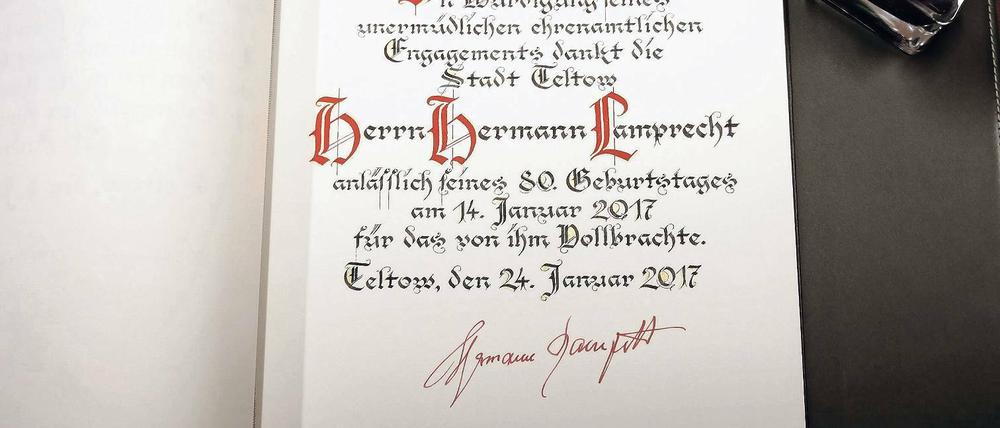 In Würdigung seines
unermüdlichen ehrenamtlichen
Engagements dankt die
Stadt Teltow
Herrn Hermann Lamprecht
anlässlich seines 80. Geburtstages
am 14. Januar 2017
für das von ihm Vollbrachte.
Teltow, den 24. Januar 2017
Hermann Lamprecht